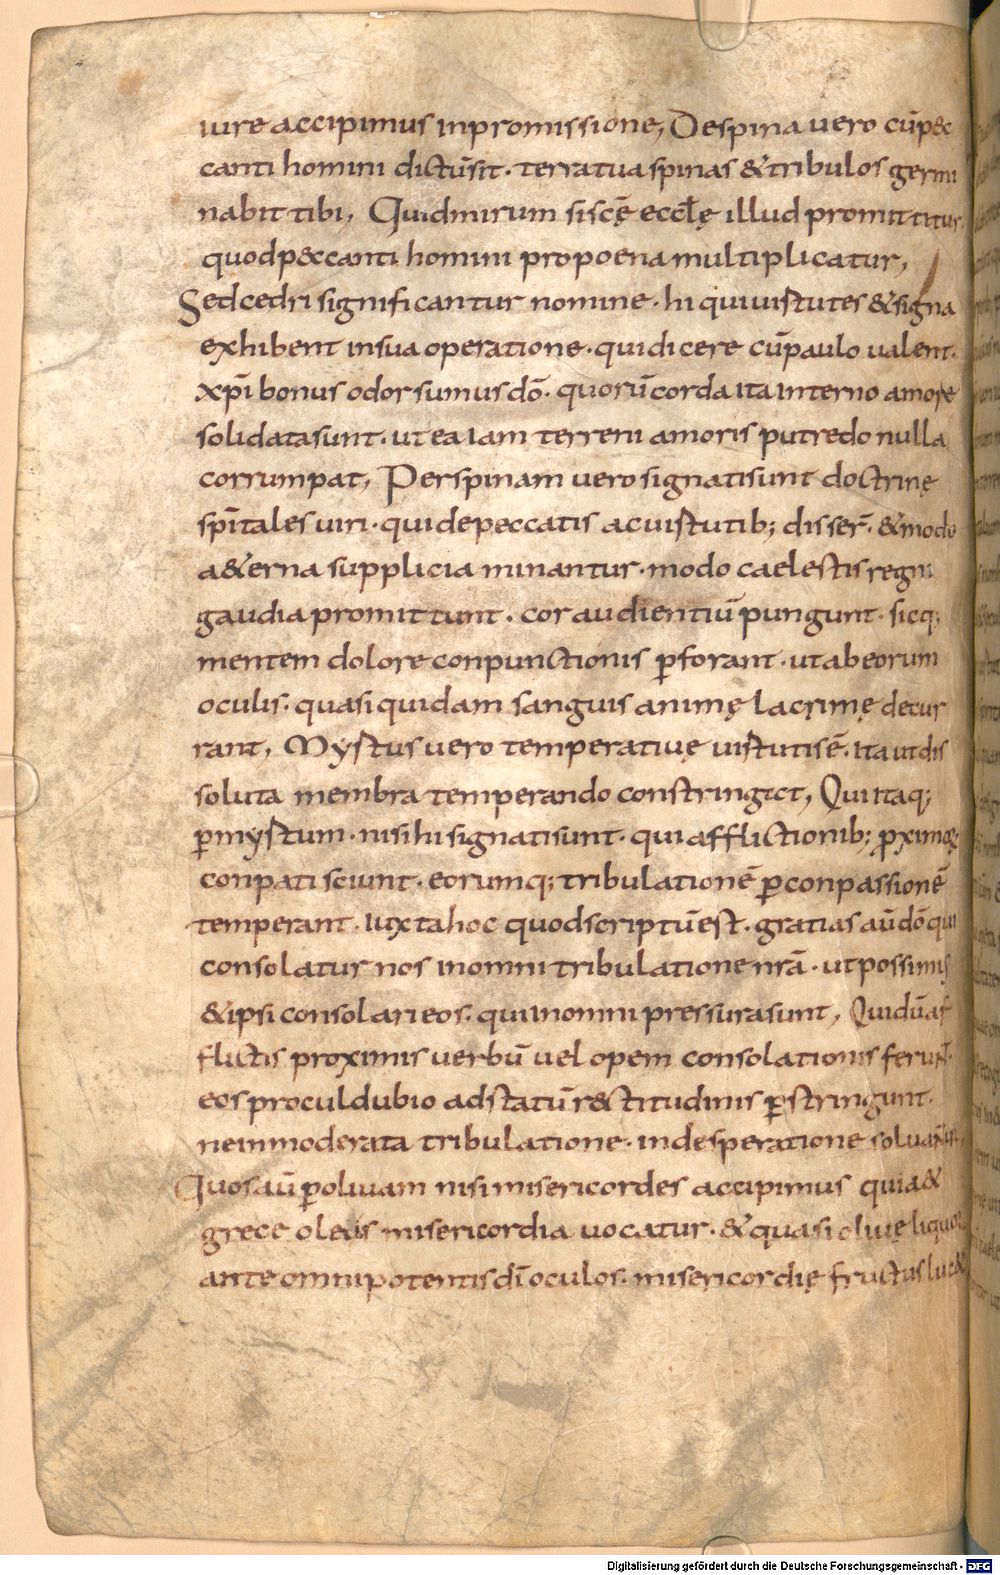 uire accipimus inpromissione, Despina uero cū pec
canti homini dictū sit · terratua spinas & tribulos germi
nabit tibi, Quidmirum siscę eccłę illud promittitur
quodp&ccanti homini propoena multiplicatur,
Sedcedri significantur nomine · hi quiuirtutes & signa
exhibent insua operatione · quidicere cū paulo ualent ·
xp̄i bonus odor sumus dō · quorū corda ita interno amore
solidata sunt · ut ea iam terreni amoris putredo nulla
corrumpat, Perspinam uero signati sunt doctrinę
sp̄itales uiri · quidepeccatis acuirtutib; disser̄ · & modo
a&erna supplicia minantur · modo caelestis regni
gaudia promittunt · cor audientiū pungunt · sicq;
mentem dolore conpunctionis p̱forant · ut abeorum
oculis · quasi quidam sanguis animę lacrimę decur
rant, Mystus uero temperatiuę uirtutis ē · ita ut dis
soluta membra temperando constringat, Qui itaq;
p̱ mystum · nisi hi signati sunt · qui afflictionib; proximoꝝ
conpati sciunt · eorumq; tribulationē p̱ conpassionē
temperant · iuxta hoc quodscriptū est · gratias aū dō qui
consolatur nos inomni tribulatione nrā · ut possimus
& ipsi consolari eos · qui inomni pressura sunt, Qui dū af
flictis proximis uerbū uel opem consolationis ferunt ·
eos proculdubio adstatū r&titudinis p̱stringunt ·
neinmoderata tribulatione · indesperatione soluantur,
Quos aū p̱ oliuam nisi misericordes accipimus quia &
grece oleus misericordia uocatur · & quasi oliuę liquor
ante omnipotentis dī oculos · misericordię fructus luc&
Digitalisierung gefördert durch die Deutsche Forschungsgemeinschaft - DFG